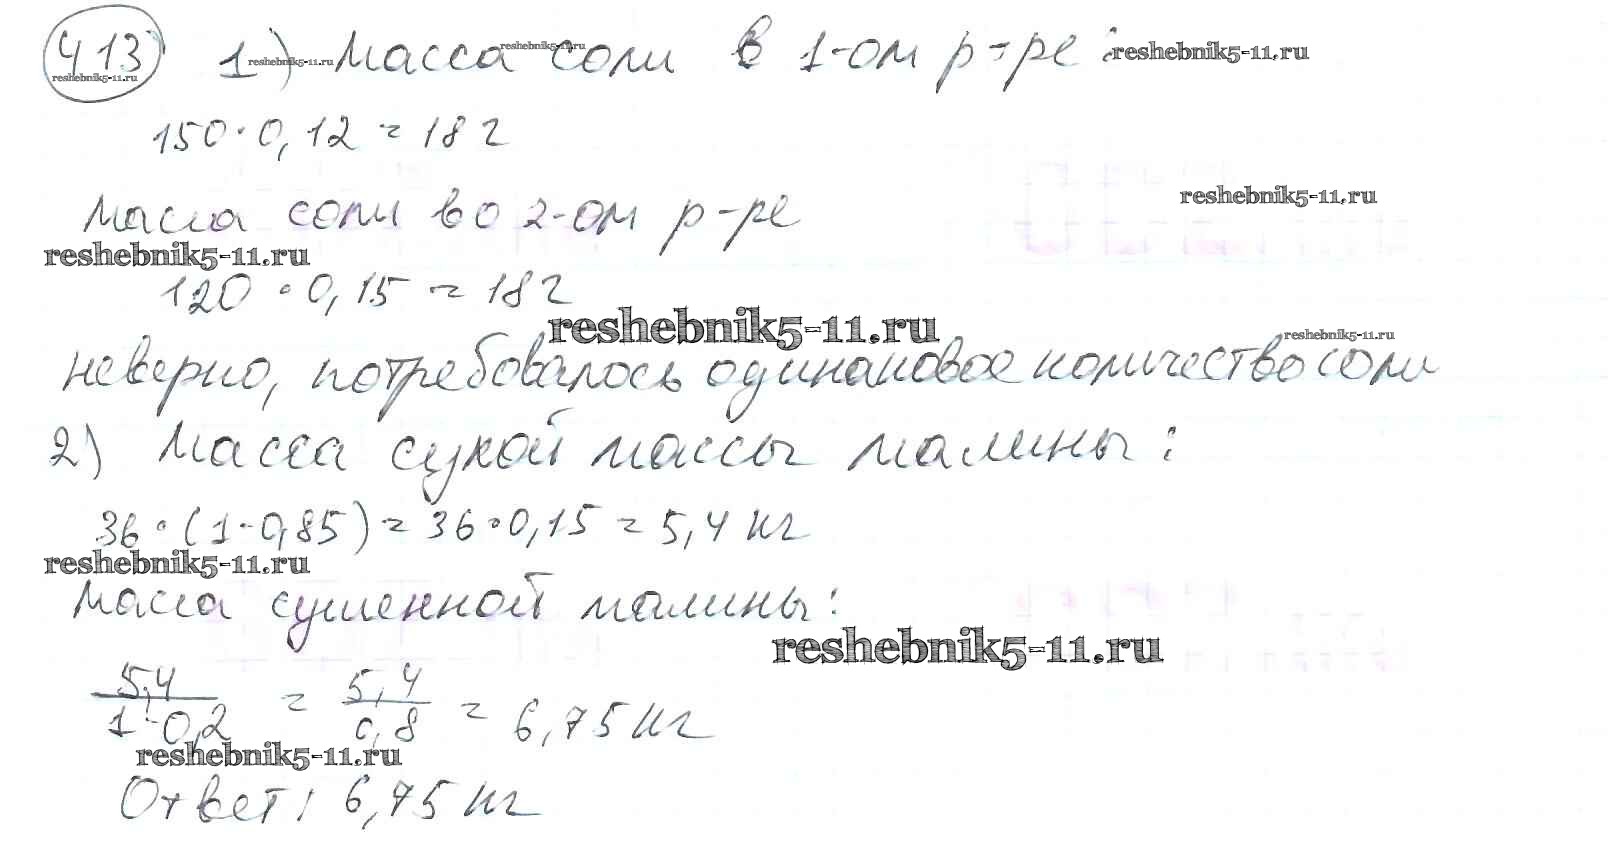 413 1) Масса соли в 1-ом р-ре:
reshebnik5-11.ru reshebnik5-11.ru reshebnik5-11.ru reshebnik5-11.ru
150·0,12 = 18 г
reshebnik5-11.ru
Масса соли во 2-ом р-ре
reshebnik5-11.ru
120·0,15 = 18 г
reshebnik5-11.ru reshebnik5-11.ru
неверно, потребовалось одинаковое количество соли
2) Масса сухой массы малины:
36·(1-0,85) = 36·0,15 = 5,4 кг
reshebnik5-11.ru
Масса сушенной малины:
reshebnik5-11.ru
5,4/1-0,2 = 5,4/0,8 = 6,75 кг
reshebnik5-11.ru
Ответ: 6,75 кг